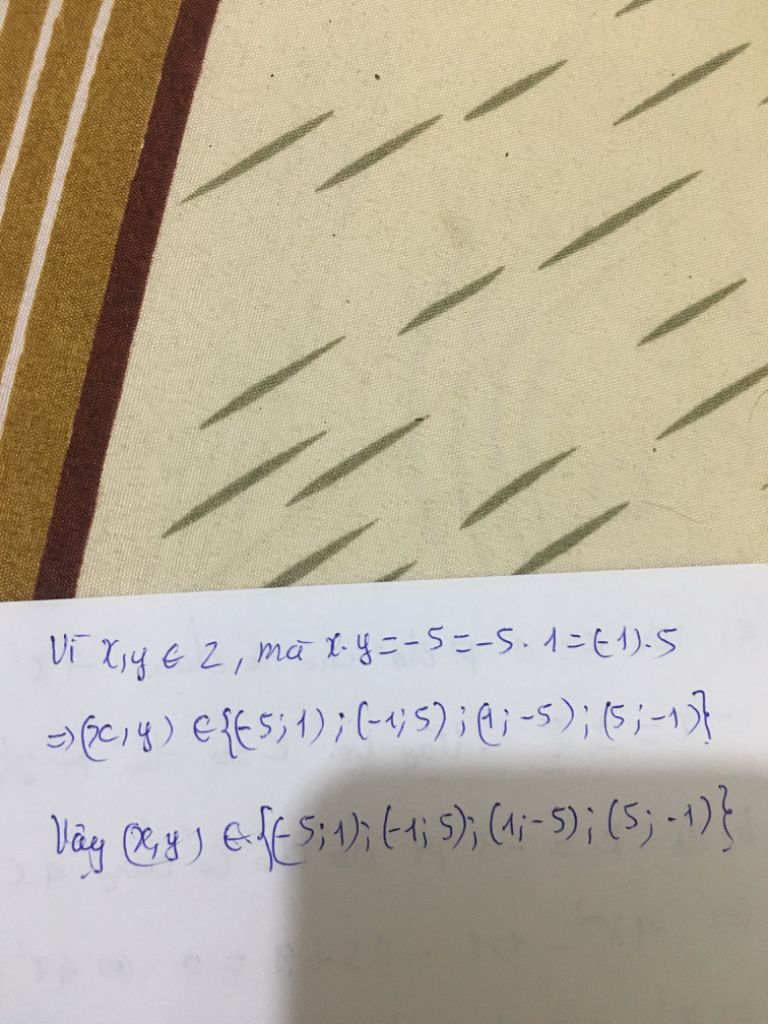 Vì x,y ∈ Z, mà x.y = -5 = -5. 1 = (-1).5
=> (x,y) ∈ {(-5;1); (-1;5); (1;-5); (5;-1)}
Vậy (x,y) ∈ {(-5;1); (-1;5); (1;-5); (5;-1)}